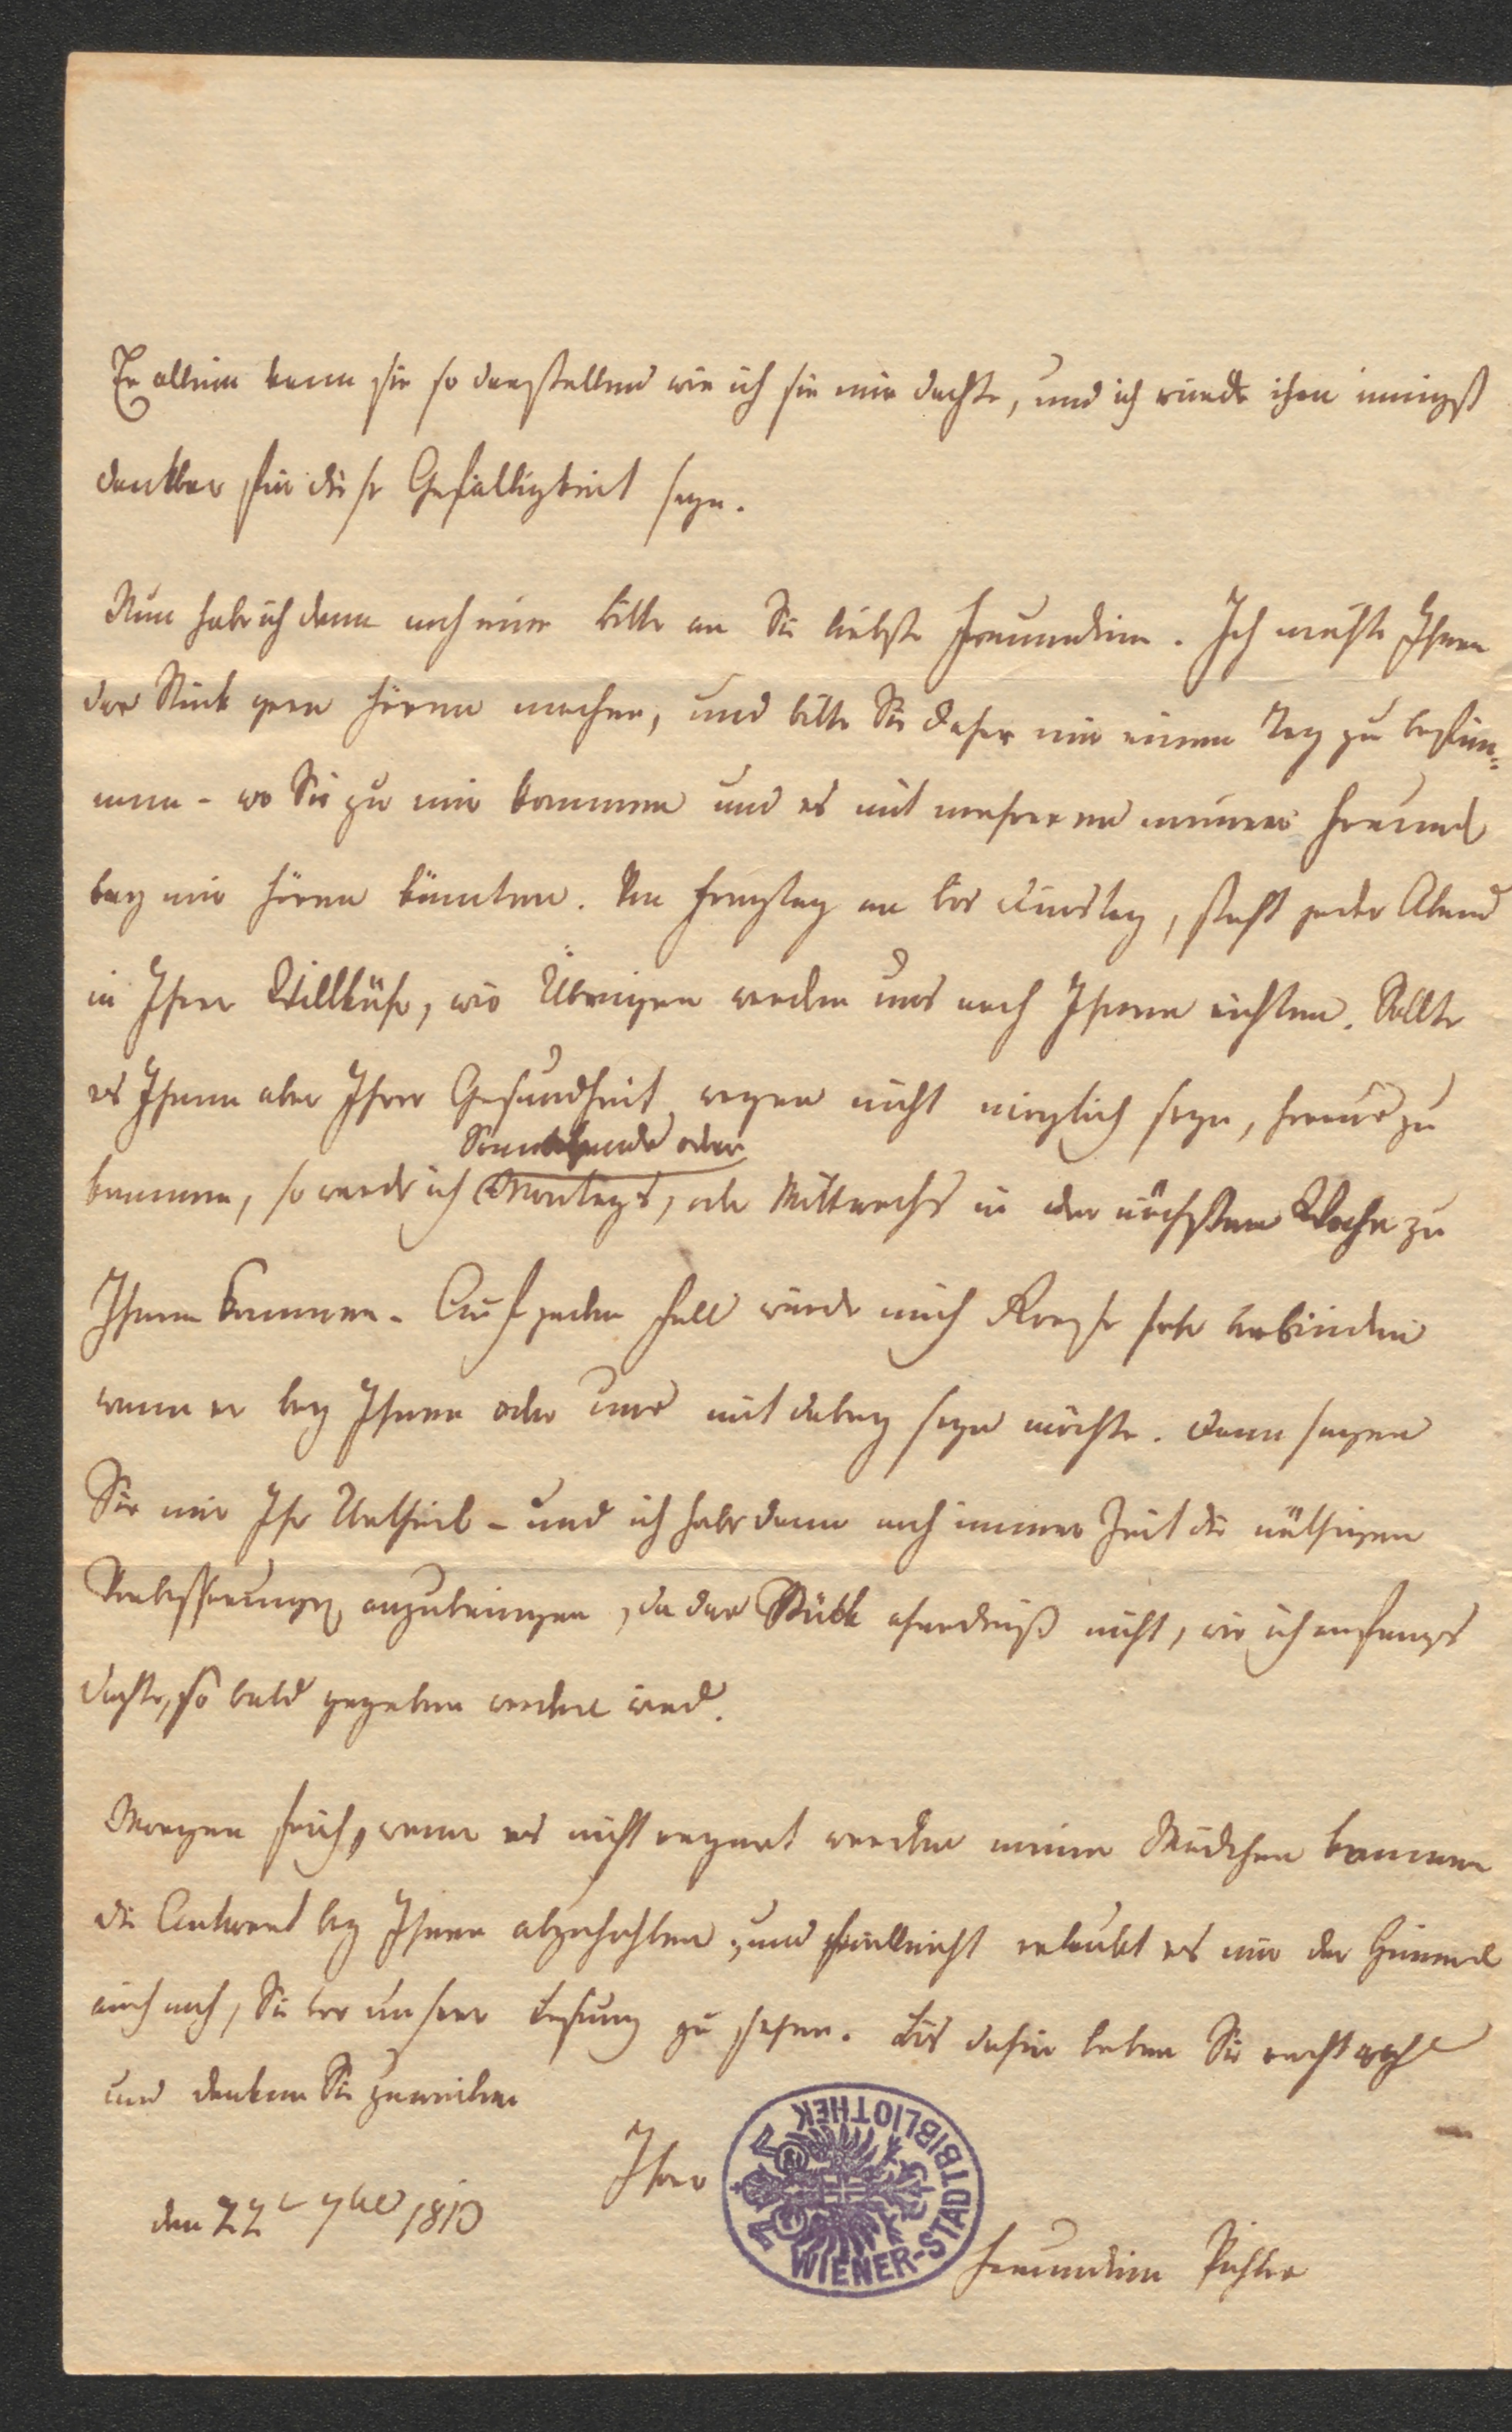 Er allein kann sie so darstellen wie ich sie mir dachte, und ich würde ihm innigst
dankbar für diese Gefälligkeit seyn.
Nun habe ich denn noch eine Bitte an Sie liebste Freundinn. Ich möchte Ihnen
das Stück gern hören machen, und bitte Sie daher mir einen Tag zu bestim-
men - wo Sie zu mir kommen und es mit mehreren meiner Freunde
bey mir hören könnten. Von Freytag an bis Dinstag, steht jeder Abend
in Ihrer Willkühr, wir Übrigen werden uns nach Ihnen richten. Sollte
es Ihnen aber Ihrer Gesundheit wegen nicht möglich seyn, herein zu
Sonnabends oder
kommen, so werde ich Montags, oder Mittwochs in der nächsten Woche zu
Ihnen kommen. Auf jeden Fall würde mich sehr verbinden
wenn er bey Ihnen oder uns mit dabey seyn möchte. Dann sagen
Sie mir Ihr Urtheil - und ich habe dann noch immer Zeit die nöthigen
Verbesserungen anzubringen, da das Stück ohnedieß nicht, wie ich anfangs
dachte, so bald gegeben werden wird.
Morgen früh, wenn es nicht regnet werden meine Mädchen kommen
die Antwort bey Ihnen abzuhohlen, und vielleicht erlaubt es mir der Himmel
auch noch, Sie vor unserer Lesung zu sehen. Bis dahin leben Sie recht wohl
und denken Sie zuweilen
Ihrer
den 22 7ber 1810
Freundinn Pichler
WIENER-STADTBIBLIOTHEK